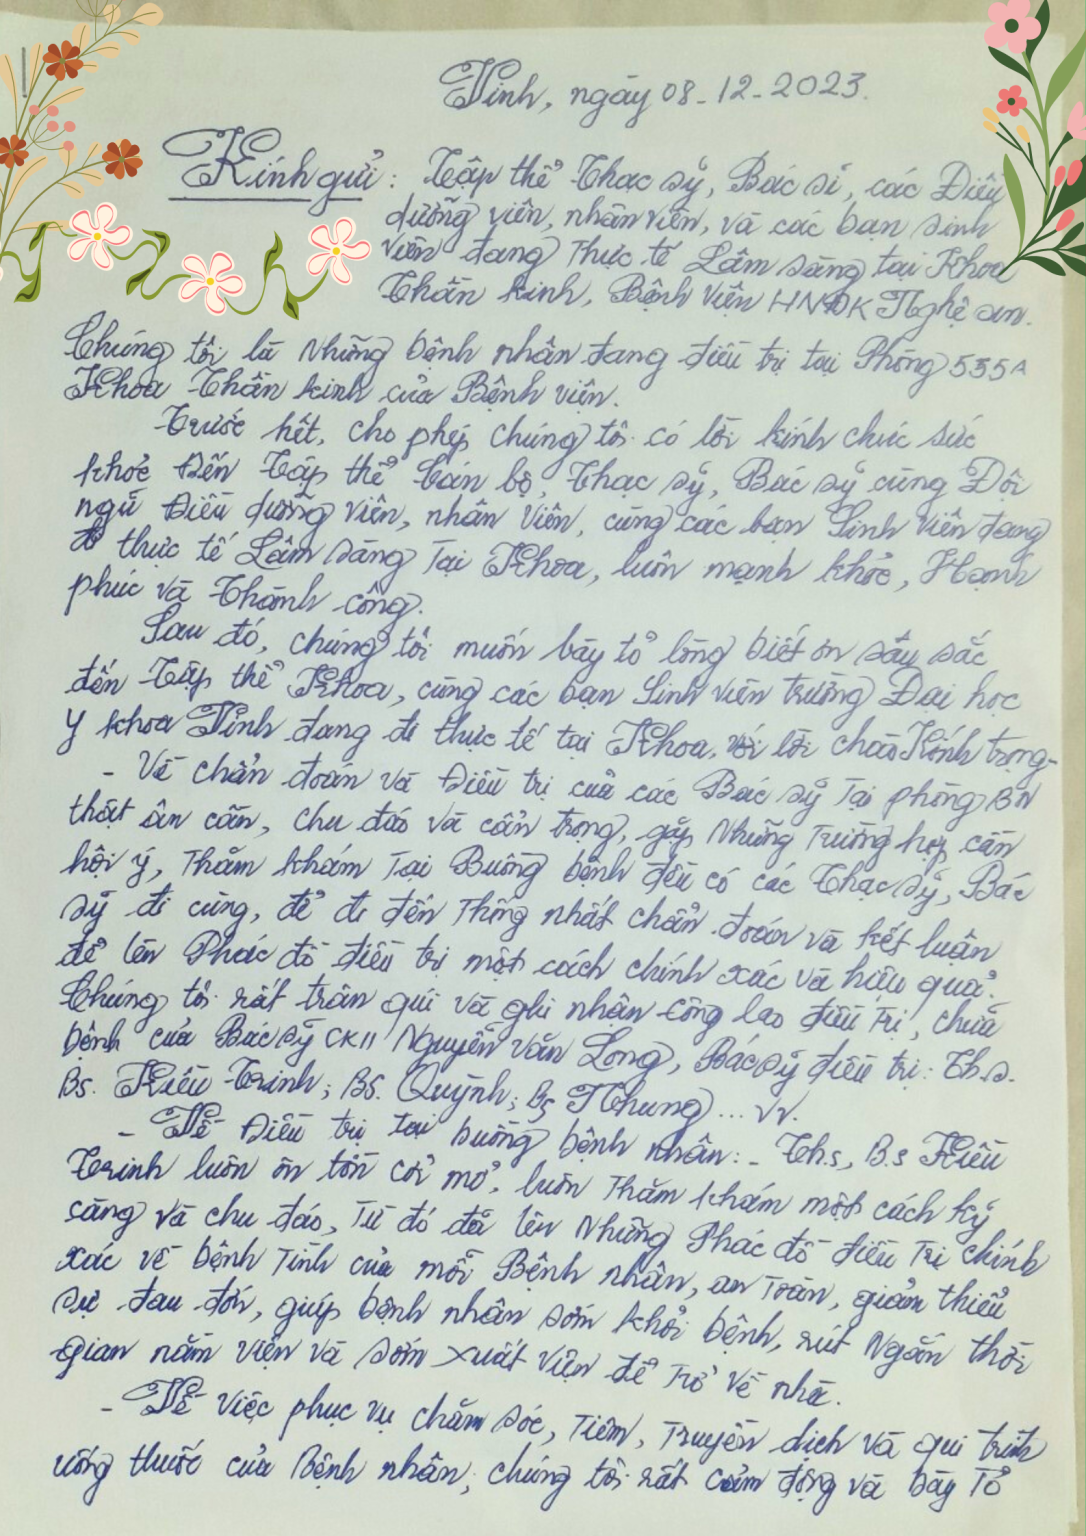 Vinh, ngày 08-12-2023.
Kính gửi: Tập thể Thạc sỹ, Bác sĩ, các Điều
dưỡng viên, nhân viên, và các bạn sinh
viên đang thực tế Lâm sàng tại Khoa
Thần kinh, Bệnh viện HNĐK Nghệ an.
Chúng tôi là những bệnh nhân đang điều trị tại Phòng 535A
Khoa Thần kinh của Bệnh viện.
Trước hết, cho phép chúng tôi có lời kính chúc sức
khỏe đến Tập thể Cán bộ, Thạc sỹ, Bác sỹ cùng Đội
ngũ Điều dưỡng viên, nhân viên, cùng các bạn Sinh viên đang
đi thực tế Lâm sàng tại Khoa, luôn mạnh khỏe, Hạnh
phúc và Thành công.
Sau đó, chúng tôi muốn bày tỏ lòng biết ơn sâu sắc
đến Tập thể Khoa, cùng các bạn Sinh viên trường Đại học
Y khoa Vinh đang đi thực tế tại Khoa, với lời chào Kính trọng-
- Về chẩn đoán và Điều trị của các Bác sỹ tại phòng BN
thật ân cần, chu đáo và cẩn trọng, gặp những trường hợp cần
hội ý, thăm khám tại Buồng bệnh đều có các Thạc sỹ, Bác
sỹ đi cùng, để đi đến thống nhất chẩn đoán và kết luận
để lên Phác đồ điều trị một cách chính xác và hậu quả.
Chúng tôi rất trân quí và ghi nhận công lao điều trị, chữa
bệnh của Bác sỹ CKII Nguyễn Văn Long, Bác sỹ điều trị: Th.s.
Bs. Kiều Trinh; BS. Quỳnh; Bs Nhung... vv.
- Về Điều trị tại buồng bệnh nhân: - Th.s, B.s Kiều
Trinh luôn ôn tồn cởi mở, luôn thăm khám một cách kỹ
càng và chu đáo, từ đó đã lên những Phác đồ điều trị chính
xác về bệnh tình của mỗi Bệnh nhân, an toàn, giảm thiểu
sự đau đớn, giúp bệnh nhân sớm khỏi bệnh, rút ngắn thời
gian nằm viện và sớm xuất viện để trở về nhà.
- Về việc phục vụ chăm sóc, tiêm, truyền dịch và qui trình
uống thuốc của Bệnh nhân, chúng tôi rất cảm động và bày tỏ